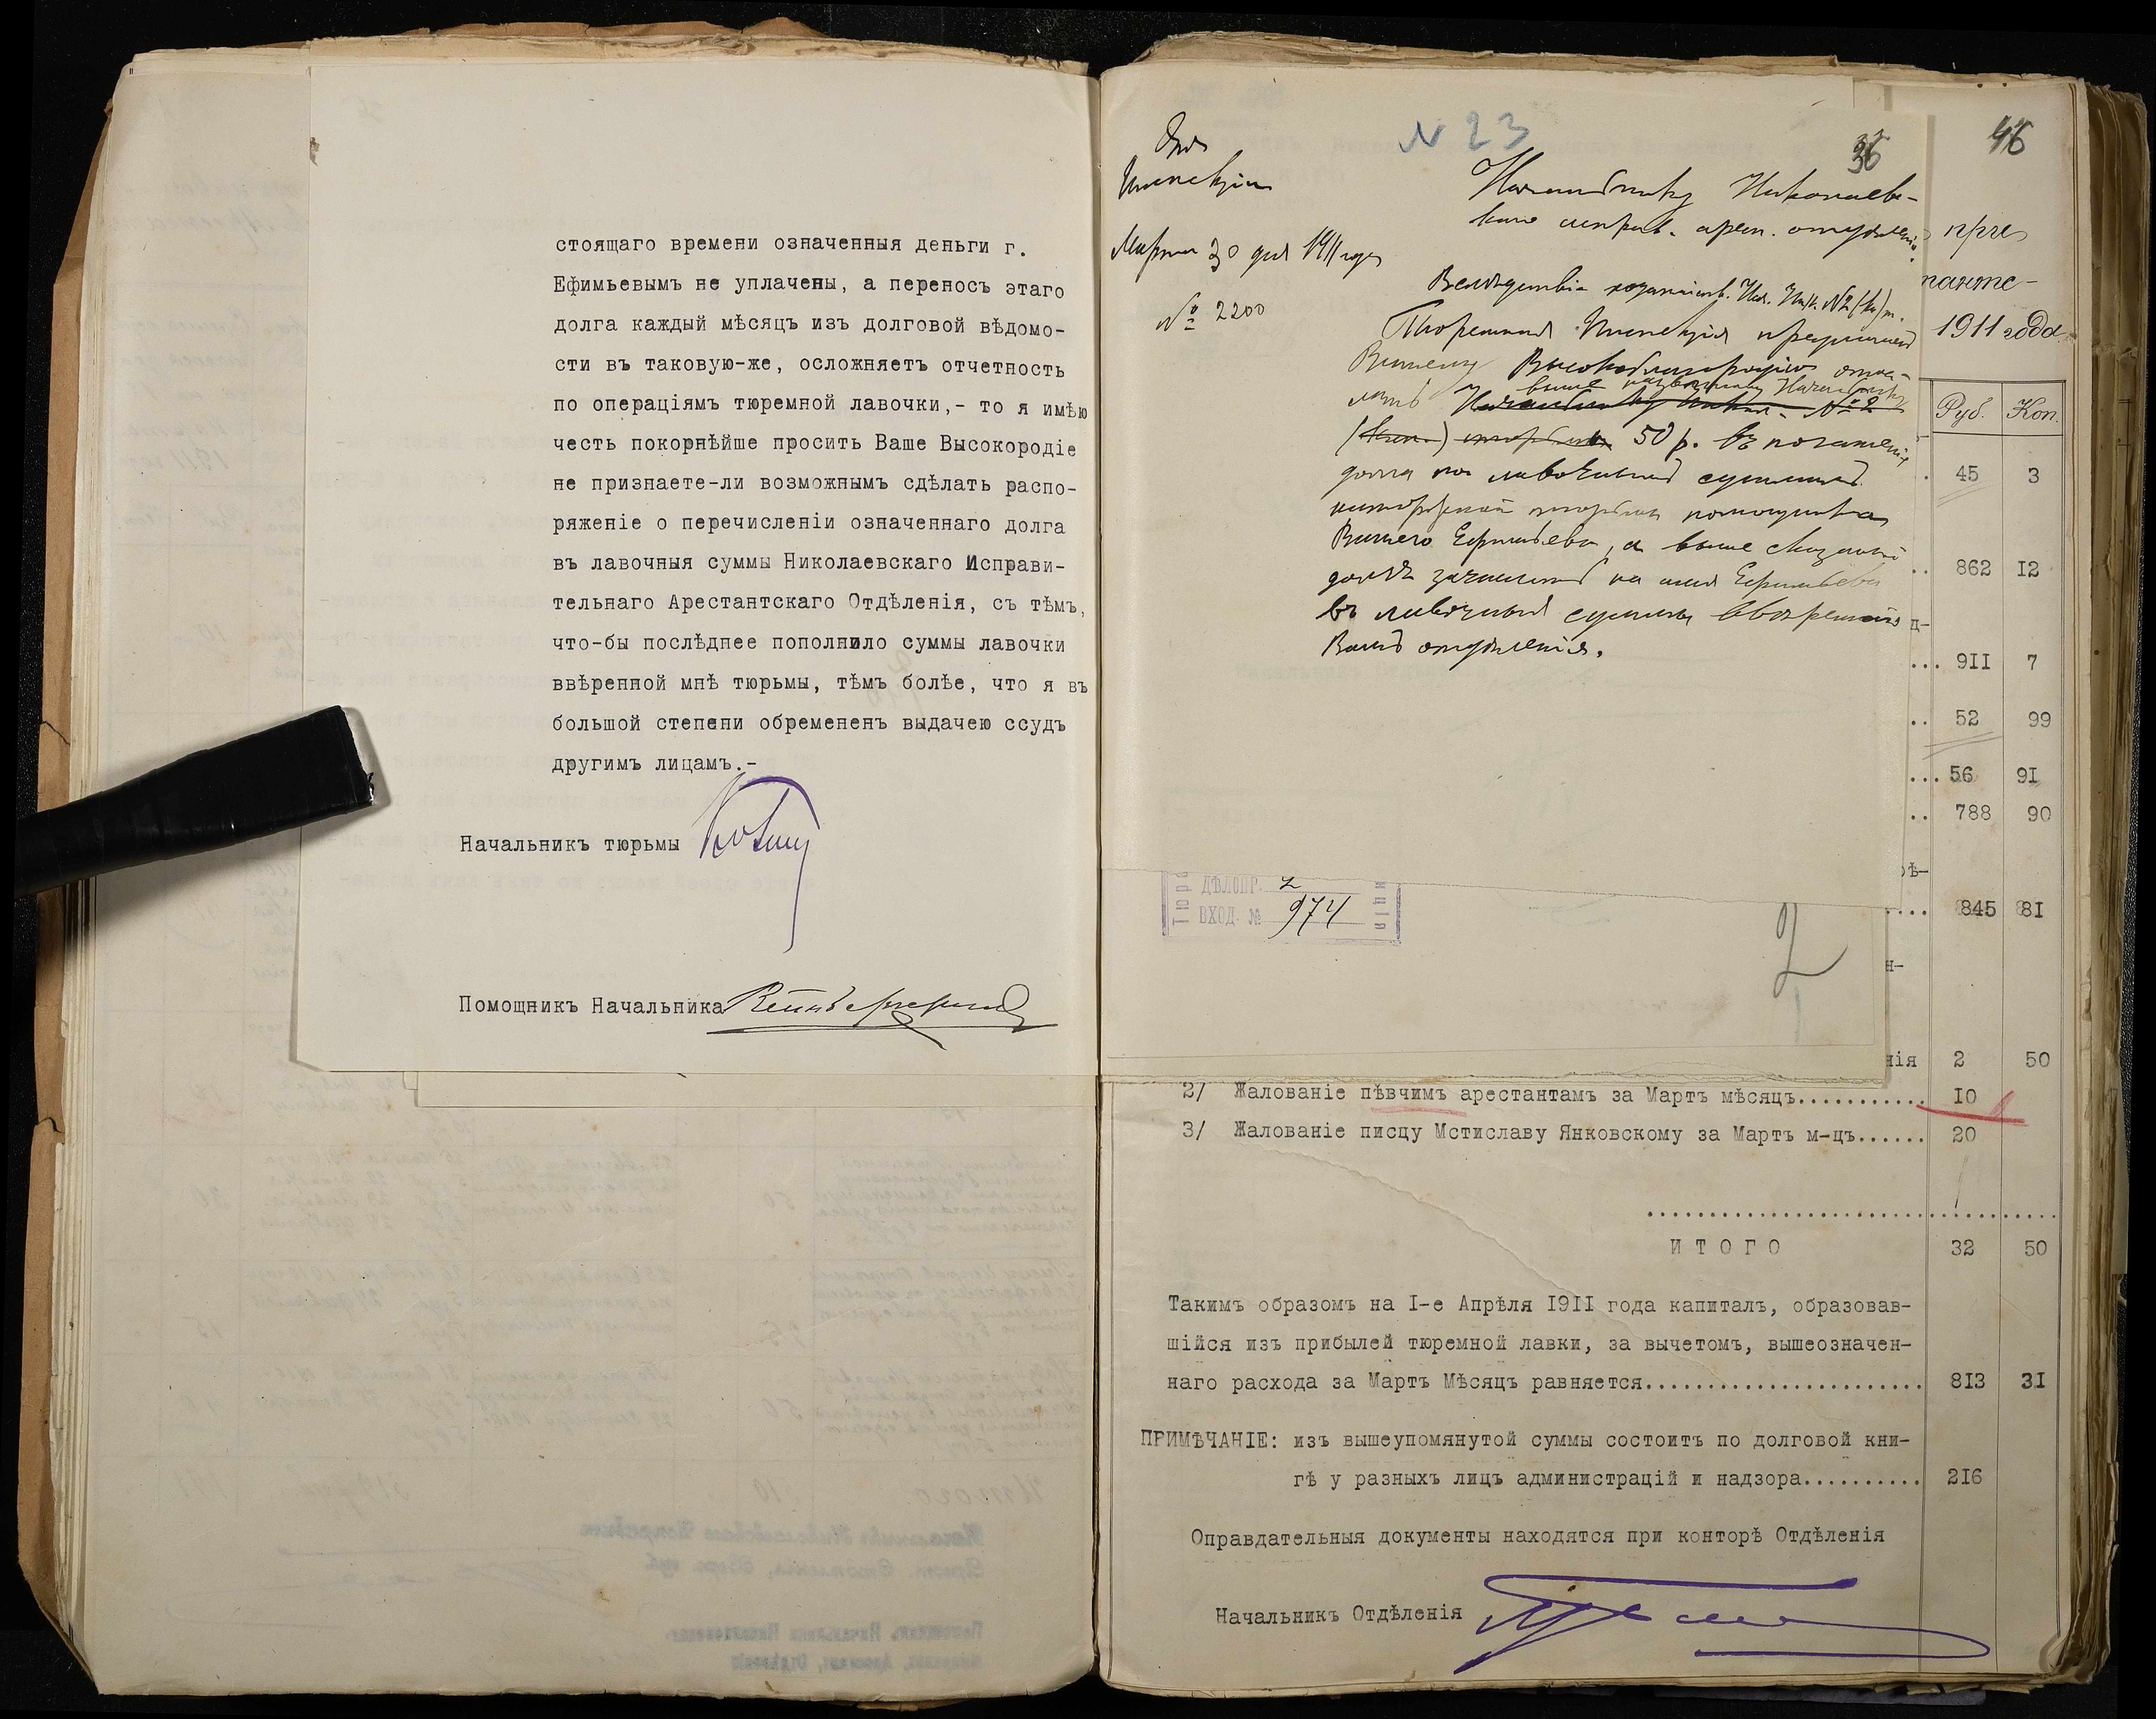 стоящаго времени означенныя деньги г.
Ефимьевымъ не уплачены, а переносъ этаго
долга каждый мѣсяцъ изъ долговой вѣдомо-
сти въ таковую-же, осложняетъ отчетность
по операціямъ тюремной лавочки,- то я имѣю
честь покорнѣйше просить Ваше Высокородіе
не признаете-ли возможнымъ сдѣлать распо-
ряженіе о перечисленіи означеннаго долга
въ лавочныя суммы Николаевскаго Исправи-
тельнаго Арестантскаго Отдѣленія, съ тѣмъ,
что-бы послѣднее пополнило суммы лавочки
ввѣренной мнѣ тюрьмы, тѣмъ болѣе, что я въ
большой степени обремененъ выдачею ссудъ
другимъ лицамъ.-
Начальникъ тюрьмы
Помощникъ Начальника
N 23
36
46
Инспекціи
Марта 30 дня 1911 года
№ 2200
Начальнику Николаев-
скаго исправ. арест. отдѣленія
Вслѣдствіе
Тюремная Инспекція
Вашему Высокоблагородію
выше Начальнику
50 р. въ погашеніе
долга по лавочнымъ суммамъ
помощника
Вашего Ефимьева, а выше сказанный
долгъ зачислить на имя Ефимьева
въ лавочныя суммы ввѣреннаго
Вамъ отдѣленія.
1911 года
Руб. Коп.
45 3
862 12
911 7
52 99
56 91
788 90
845 81
ДѢЛОПР. 2
ВХОД. № 974
2
нія 2 50
2/ Жалованіе пѣвчимъ арестантамъ за Мартъ мѣсяцъ........... 10
3/ Жалованіе писцу Мстиславу Янковскому за Мартъ м-цъ...... 20
ИТОГО 32 50
Такимъ образомъ на I-е Апрѣля 1911 года капиталъ, образовав-
шійся изъ прибылей тюремной лавки, за вычетомъ, вышеозначен-
наго расхода за Мартъ Мѣсяцъ равняется....................... 813 31
ПРИМѢЧАНІЕ: изъ вышеупомянутой суммы состоитъ по долговой кни-
гѣ у разныхъ лицъ администрацій и надзора.......... 216
Оправдательныя документы находятся при конторѣ Отдѣленія
Начальникъ Отдѣленія